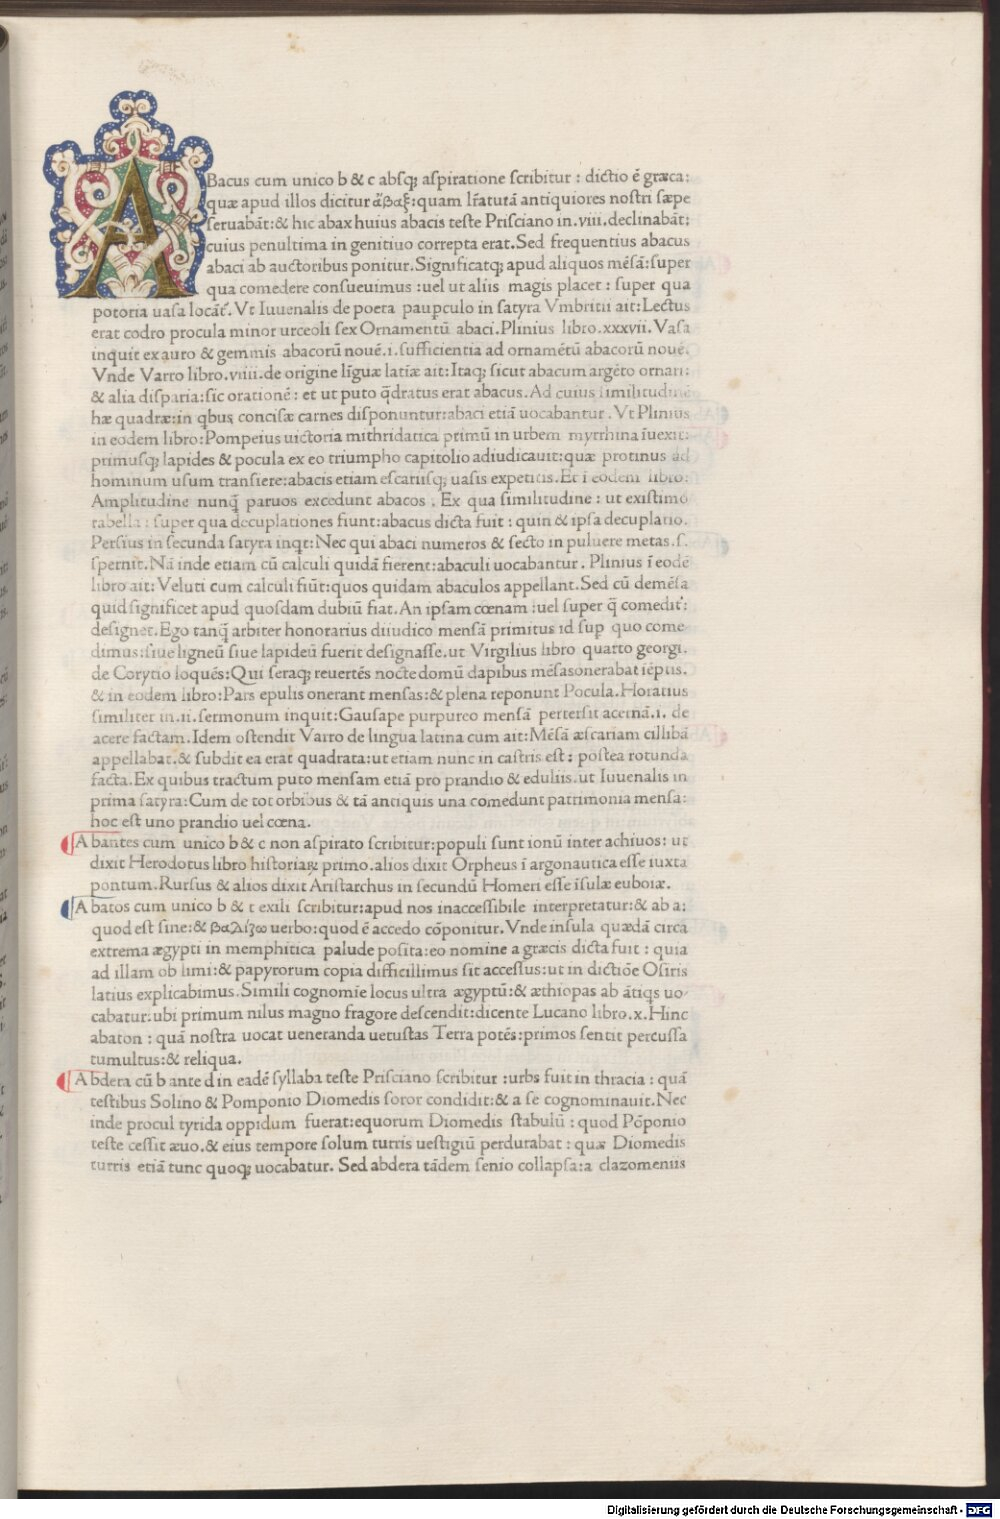 ABacus cum unico b & c absq; aſpiratione ſcribitur : dictio ē græca:
quæ apud illos dicitur ἄβαξ:quam lr̄aturā antiquiores noſtri ſæpe
ſeruabāt:& hic abax huius abacis teſte Priſciano in.viii.declinabāt:
cuius penultima in genitiuo correpta erat.Sed frequentius abacus
abaci ab auctoribus ponitur.Significatq; apud aliquos mēſā:ſuper
qua comedere conſueuimus :uel ut aliis magis placet : ſuper qua
potoria uaſa locāt̄. Vt Iuuenalis de poeta paupculo in ſatyra Vmbritii ait:Lectus
erat codro procula minor urceoli ſex Ornamentū abaci.Plinius libro.xxxvii.Vaſa
inquit ex auro & gemmis abacorū nouē.i.ſufficientia ad ornamētū abacorū nouē.
Vnde Varro libro.viiii.de origine līguæ latiæ ait:Itaq; ſicut abacum argēto ornari:
& alia diſparia:ſic orationē : et ut puto q̄dratus erat abacus.Ad cuius ſimilitudinē
hæ quadræ:in qbus conciſæ carnes diſponuntur:abaci etiā uocabantur . Vt Plinius
in eodem libro:Pompeius uictoria mithridatica primū in urbem myrrhina īuexit:
primuſq; lapides & pocula ex eo triumpho capitolio adiudicauit:quæ protinus ad
hominum uſum tranſiere:abacis etiam eſcariiſq; uaſis expetitis.Et ī eodem libro:
Amplitudine nunq̄ paruos excedunt abacos . Ex qua ſimilitudine : ut exiſtimo
tabella : ſuper qua decuplationes fiunt:abacus dicta fuit : quin & ipſa decuplatio.
Perſius in ſecunda ſatyra inqt:Nec qui abaci numeros & ſecto in puluere metas.ſ.
ſpernit.Nā inde etiam cū calculi quidā fierent:abaculi uocabantur . Plinius ī eodē
libro ait: Veluti cum calculi fiūt:quos quidam abaculos appellant.Sed cū demēſa
quid ſignificet apud quoſdam dubiū fiat.An ipſam cœnam :uel ſuper q̄ comedit̄:
deſignet.Ego tanq̄ arbiter honorarius diiudico menſā primitus id ſup quo come
dimus:ſiue ligneū ſiue lapideū fuerit deſignaſſe.ut Virgilius libro quarto georgi.
de Corytio loquēs:Qui ſeraq; reuertēs nocte domū dapibus mēſasonerabat iēptis.
& in eodem libro:Pars epulis onerant menſas:& plena reponunt Pocula.Horatius
ſimiliter in.ii.ſermonum inquit:Gauſape purpureo menſā perterſit acernā.i. de
acere factam.Idem oſtendit Varro de lingua latina cum ait:Mēſā æſcariam cillibā
appellabat.& ſubdit ea erat quadrata:ut etiam nunc in caſtris eſt : poſtea rotunda
facta.Ex quibus tractum puto menſam etiā pro prandio & eduliis.ut Iuuenalis in
prima ſatyra:Cum de tot orbibus & tā antiquis una comedunt patrimonia menſa:
hoc eſt uno prandio uel cœna.
Abantes cum unico b & c non aſpirato ſcribitur:populi ſunt ionū inter achiuos: ut
dixit Herodotus libro hiſtoriaꝝ primo.alios dixit Orpheus ī argonautica eſſe iuxta
pontum.Rurſus & alios dixit Ariſtarchus in ſecundū Homeri eſſe īſulæ euboiæ.
Abatos cum unico b & t exili ſcribitur:apud nos inacceſſibile interpretatur:& ab a:
quod eſt ſine:& βαλίζω uerbo:quod ē accedo cōponitur.Vnde inſula quædā circa
extrema ægypti in memphitica palude poſita:eo nomine a græcis dicta fuit : quia
ad illam ob limi:& papyrorum copia difficillimus ſit acceſſus:ut in dictiōe Oſiris
latius explicabimus.Simili cognomīe locus ultra ægyptū:& æthiopas ab ātiqs uo
cabatur:ubi primum nilus magno fragore deſcendit:dicente Lucano libro.x.Hinc
abaton : quā noſtra uocat ueneranda uetuſtas Terra potēs:primos ſentit percuſſa
tumultus:& reliqua.
Abdera cū b ante d in eadē ſyllaba teſte Priſciano ſcribitur :urbs fuit in thracia : quā
teſtibus Solino & Pomponio Diomedis ſoror condidit:& a ſe cognominauit.Nec
inde procul tyrida oppidum fuerat:equorum Diomedis ſtabulū : quod Pōponio
teſte ceſſit æuo.& eius tempore ſolum turris ueſtigiū perdurabat : quæ Diomedis
turris etiā tunc quoq; uocabatur. Sed abdera tādem ſenio collapſa:a clazomeniis
Digitalisierung gefördert durch die Deutsche Forschungsgemeinschaft - DFG